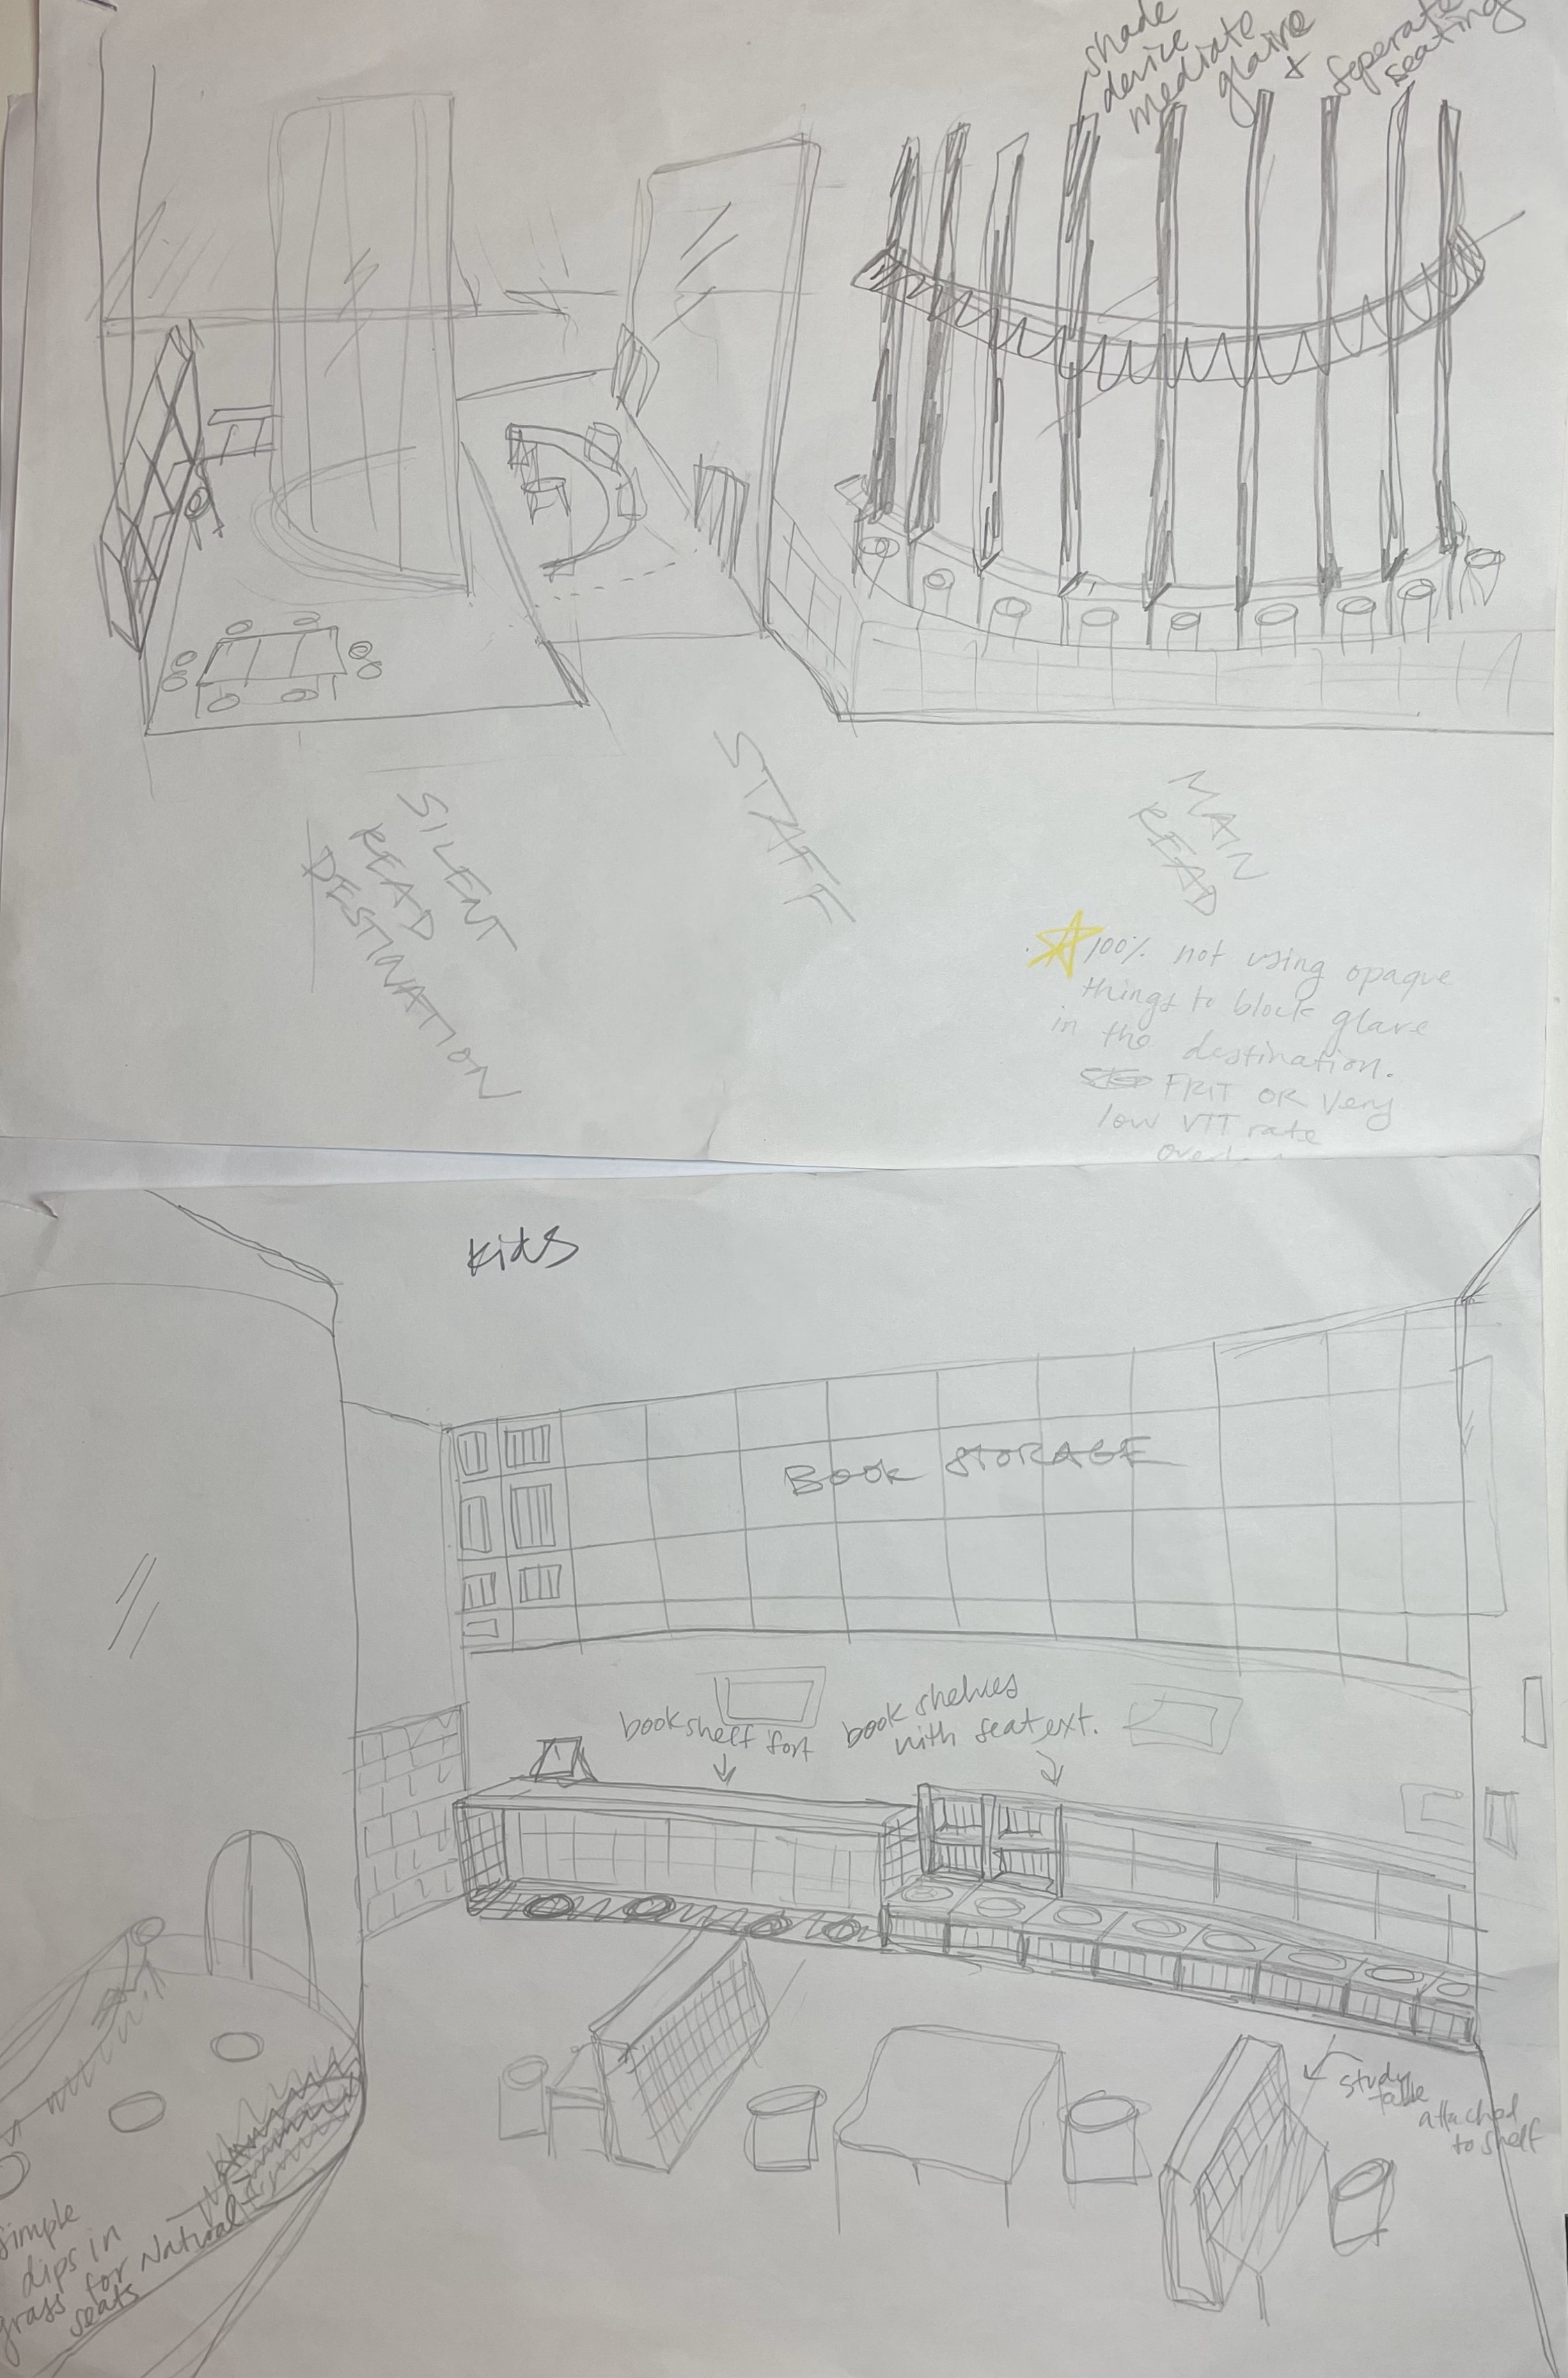 shade
device
mediate
glaire
+
seperate
seating
SILENT
READ
DESTINATION
STAFF
MAIN
READ
100% not using opaque
things to block glare
in the destination.
FRIT OR Very
low VTT rate
Kids
BOOK STORAGE
bookshelf fort
book shelves
with seat ext.
study
table
attached
to shelf
simple
dips in
grass for Natural
seats